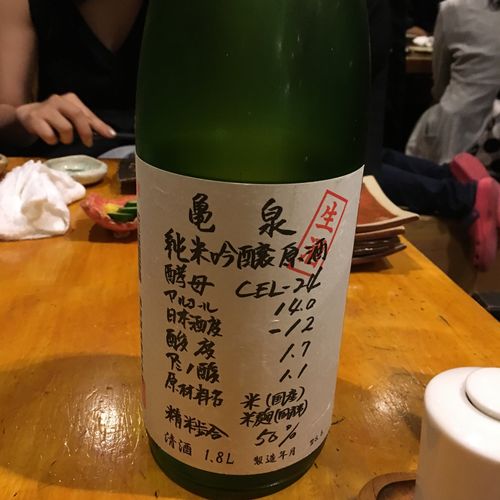 亀泉
生酒
純米吟醸原酒
酵母 CEL-24
アルコール 14.0
日本酒度 -12
酸度 1.7
アミノ酸 1.1
原材料名 米(国産)
米麹(国産米)
精米歩合 50%
清酒 1.8L 製造年月